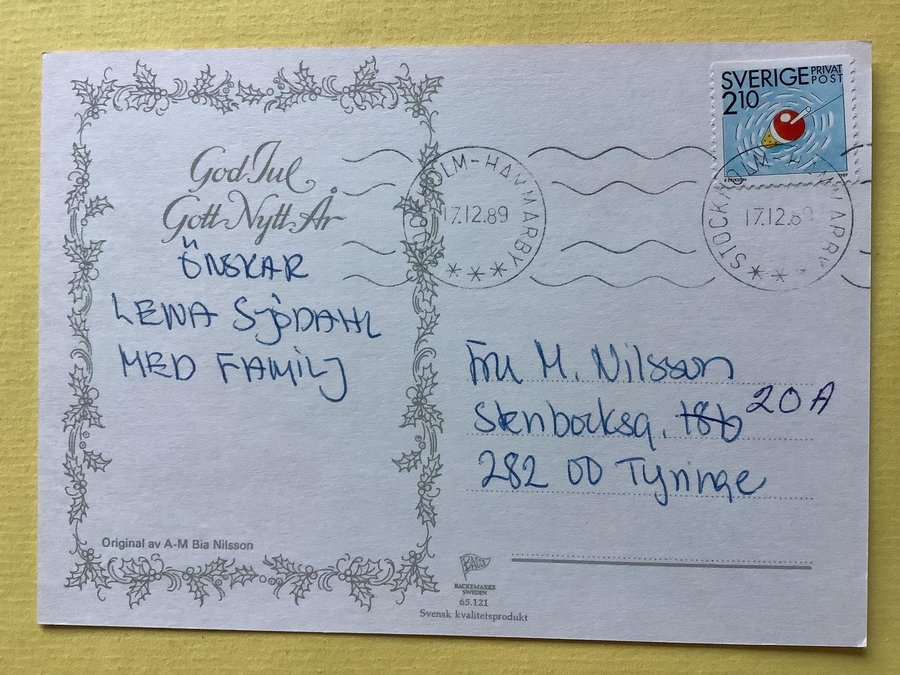 God Jul
Gott Nytt År
ÖNSKAR
LENA SJÖDAHL
MED FAMILJ
Original av A-M Bia Nilsson
SVERIGE PRIVAT POST
2.10
HOLM-HAMMARBY
17.12.89
STOCKHOLM-HAMMARBY
17.12.89
Fru M. Nilsson
Stenbocksg. 18b 20A
282 00 Tyringe
BACKEMARKS
SWEDEN
65.121
Svensk kvalitetsprodukt